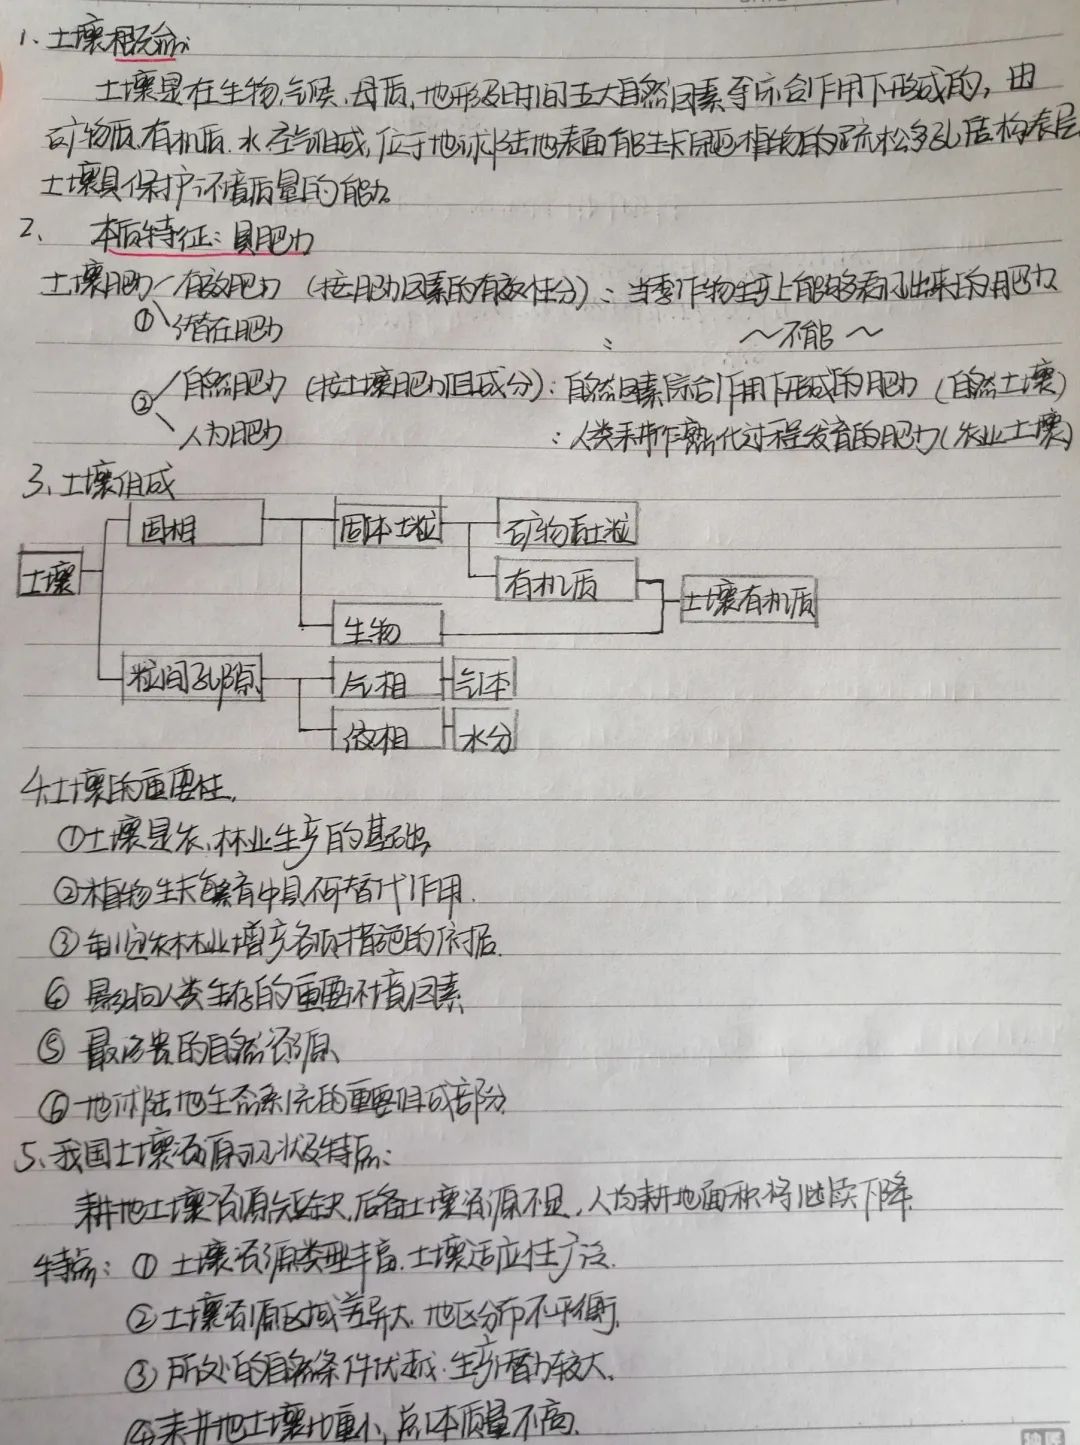 1、土壤概念:
土壤是在生物、气候、母质、地形及时间五大自然因素等综合作用下形成的，由
矿物质、有机质、水、空气组成，位于地球陆地表面能生长植物的疏松多孔结构表层
土壤具保护环境质量的能力
2、 本质特征：具肥力
土壤肥力 有效肥力 (按肥力因素的有效性分)：当季作物生产上能够表现出来的肥力
① 潜在肥力 : ～不能～
② 自然肥力 (按土壤肥力组成分)：自然因素综合作用下形成的肥力 (自然土壤)
人为肥力 ：人类耕作熟化过程发育的肥力(农业土壤)
3、土壤组成
固相 固体土粒 矿物质土粒
土壤 有机质 土壤有机质
生物
粒间孔隙 气相 气体
液相 水分
4.土壤的重要性.
①土壤是农、林业生产的基础
②植物生长繁育中具不可替代作用.
③制定农林业增产各项措施的依据.
④ 影响人类生存的重要环境因素
⑤ 最珍贵的自然资源、
⑥地球陆地生态系统的重要组成部分.
5、我国土壤资源现状及特点：
耕地土壤资源短缺,后备土壤资源不足，人均耕地面积将继续下降.
特点：① 土壤资源类型丰富.土壤适应性广泛.
② 土壤资源区域差异大.地区分布不平衡,
③ 所处的自然条件优越.生产潜力较大.
④耕地土壤比重小,总体质量不高.